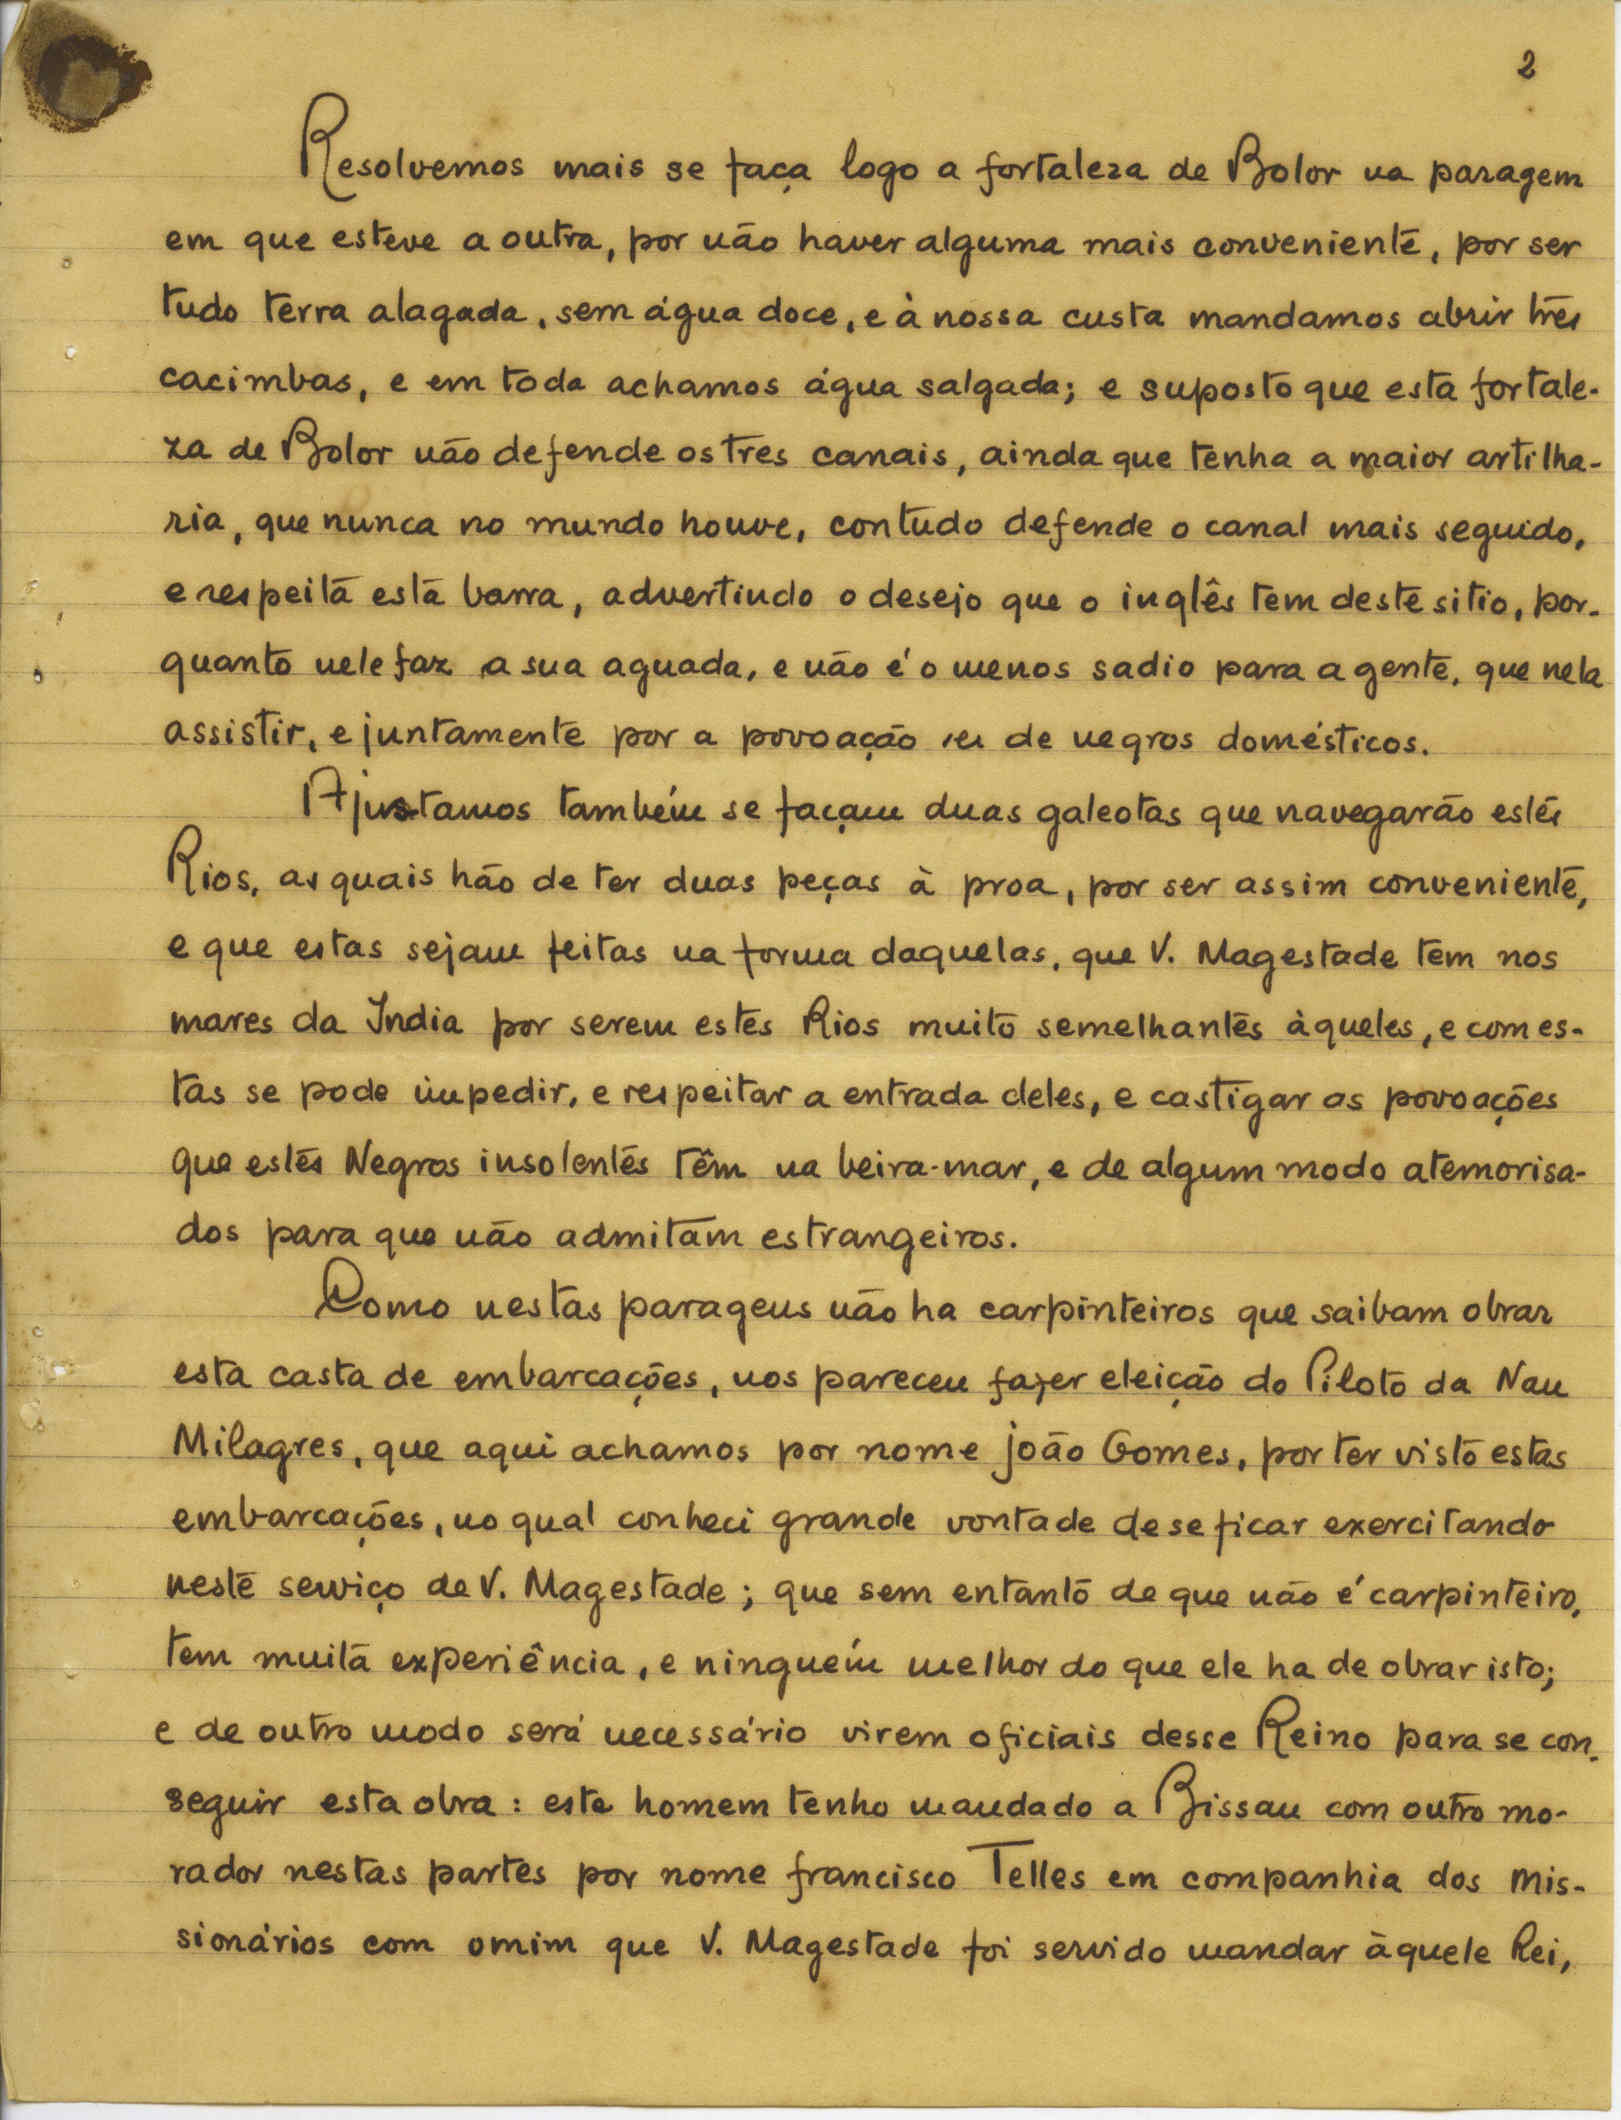 2
Resolvemos mais se faça logo a fortaleza de Bolor na paragem
em que esteve a outra, por não haver alguma mais conveniente, por ser
tudo terra alagada, sem água doce, e à nossa custa mandamos abrir três
cacimbas, e em toda achamos água salgada; e suposto que esta fortale-
za de Bolor não defende os tres canais, ainda que tenha a maior artilha-
ria, que nunca no mundo houve, contudo defende o canal mais seguido,
e respeita esta barra, advertindo o desejo que o inglês tem deste sitio, por-
quanto nele faz a sua aguada, e não é o menos sadio para a gente, que nela
assistir, e juntamente por a povoação ser de negros domésticos.
Ajustamos também se façam duas galeotas que navegarão estes
Rios, as quais hão de ter duas peças à proa, por ser assim conveniente,
e que estas sejam feitas na forma daquelas, que V. Magestade tem nos
mares da India por serem estes Rios muito semelhantes àqueles, e com es-
tas se pode impedir, e respeitar a entrada deles, e castigar as povoações
que estes Negros insolentes têm na beira-mar, e de algum modo atemorisa-
dos para que não admitam estrangeiros.
Como nestas paragens não ha carpinteiros que saibam obrar
esta casta de embarcações, nos pareceu fazer eleição do Piloto da Nau
Milagres, que aqui achamos por nome joão Gomes, por ter visto estas
embarcações, no qual conheci grande vontade de se ficar exercitando
neste serviço de V. Magestade; que sem entanto de que não é carpinteiro,
tem muita experiência, e ninguém melhor do que ele ha de obrar isto;
e de outro modo será necessário virem oficiais desse Reino para se con-
seguir esta obra: este homem tenho mandado a Bissau com outro mo-
rador nestas partes por nome francisco Telles em companhia dos mis-
sionários com o mim que V. Magestade foi servido mandar àquele Rei,